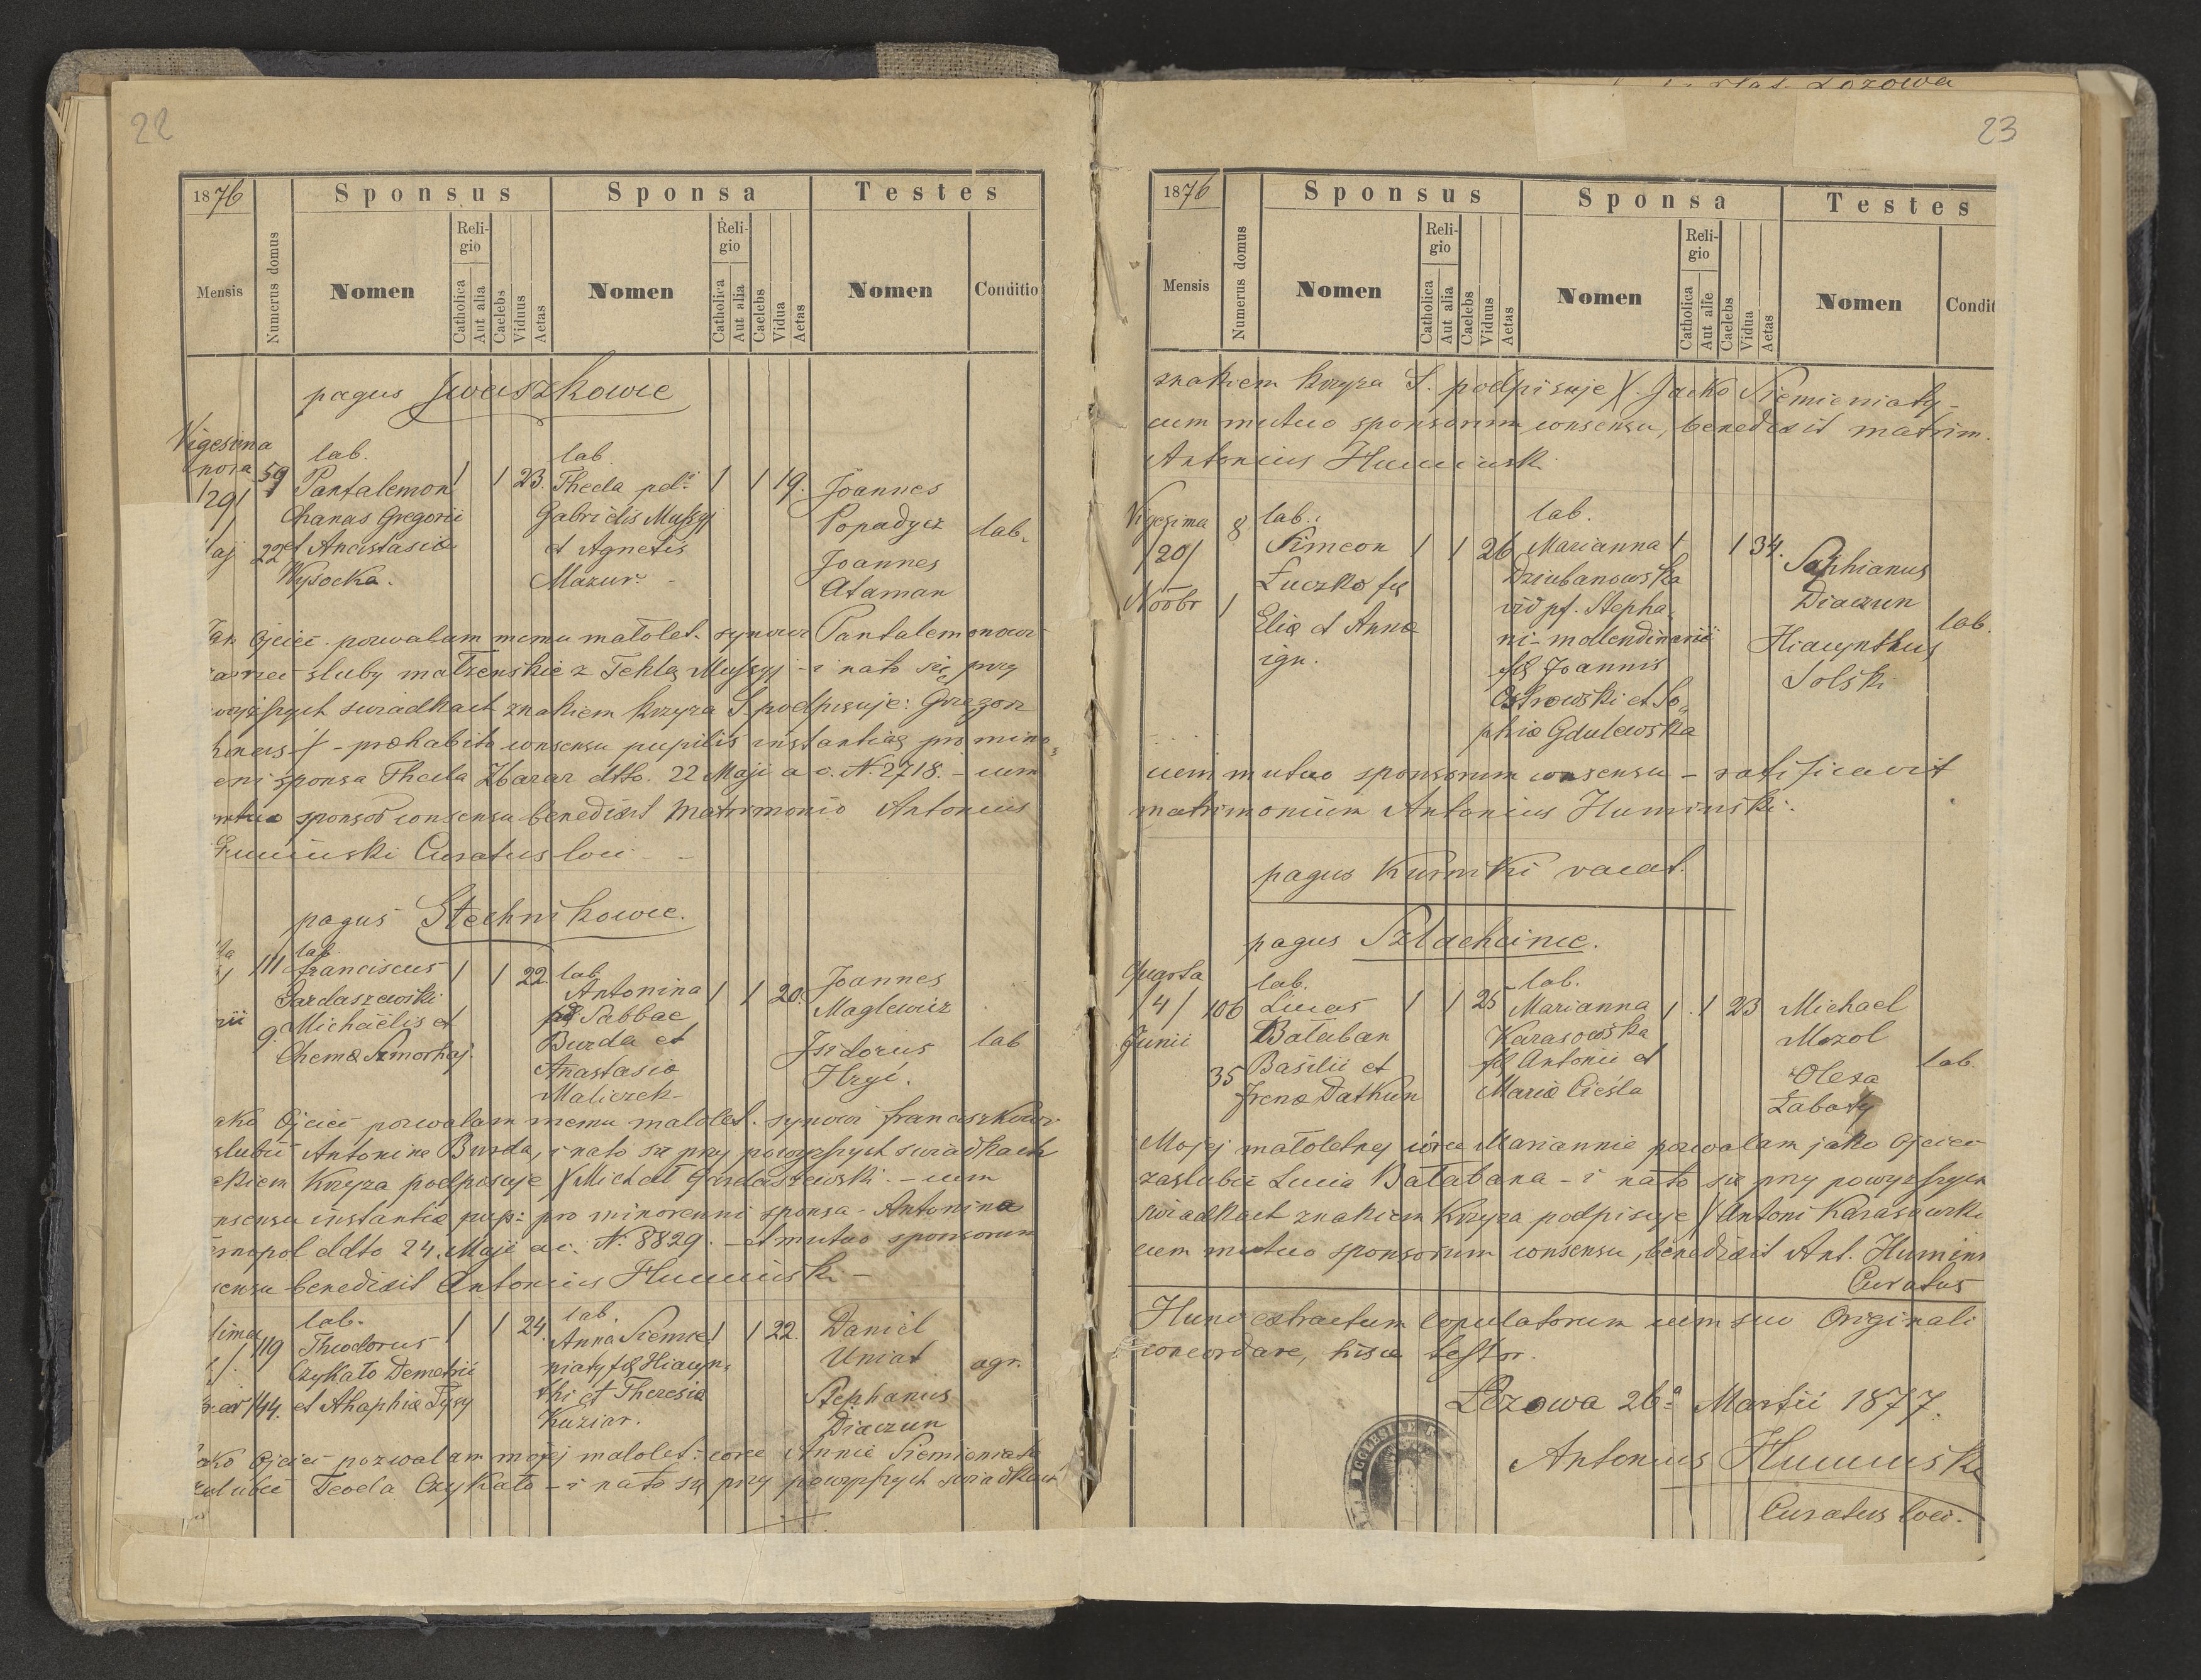 22
1876
Sponsus Sponsa Testes
Mensis Numerus domus Nomen Religio Catholica Aut alia Caelebs Viduus Aetas Nomen Religio Catholica Aut alia Caelebs Vidua Aetas Nomen Conditio
pagus Iwaszkowce
Vigesima lab. lab.
nona 59 Pantalemon 1 1 23. Thecla 1 1 19. Joannes
/29/ Chanas Gregorii Gabrielis Mussyj Popadycz lab.
22 et Anastasia et Agnetis Joannes
Wysocka. Mazur. Ataman
Ojciec pozwalam memu małolet. synowi Pantalemonowi
śluby małżeńskie z Teklą Mussyj - i nato się przy
świadkach znakiem krzyża S. podpisuje: Gregorz
- prohabito consensu pupilis instantiae pro mino=
sponsa Thecla Zbaraz ddto. 22 Maji a c. N. 2718. - cum
sponsor consensu benedixit matrimonio Antonius
Humiński Curatus loci -
pagus Stechnikowce.
111 lab. lab.
Franciscus 1 1 22. Antonina 1 1 20. Joannes
Gardaszewski Sabbae Maglewicz
9. Michaelis et Burda et Isidorus lab
Chema Szmorhaj. Anastasia Hryć.
Maliczek
Ojciec pozwalam memu małolet. synowi Franciszkowi
ślubić Antonine Burda, i nato się przy powyższych świadkach
krzyża podpisuje Michał Gardaszewski. - cum
instantia pup: pro minorenni sponsa - Antonina
ddto 24. Maji a c. N. 8829. - et mutuo sponsorum
benedixit Antonius Humiński -
lab. lab.
119 Theodorus 1 1 24. Anna Siemie 1 1 22. Daniel
Czykało Demetrii niaty fil Hiacyn= Uniat agr.
144. et Ahaphia Łysy thi et Theresia Stephanus
Kuziar. Diaczun
Ojciec pozwalam mojej małolet: córce Annie Siemieniaty
Teodla Czykało - i nato się przy powyższych świadkach
23
1876
Sponsus Sponsa Testes
Mensis Numerus domus Nomen Religio Catholica Aut alia Caelebs Viduus Aetas Nomen Religio Catholica Aut alie Caelebs Vidua Aetas Nomen Condit
znakiem krzyża S. podpisuje X Jacko Siemieniaty -
cum mutuo sponsorum consensu, benedixit matrim.
Antonius Humiński
Vigesima 8 lab. lab.
/20/ Simeon 1 1 26 Marianna 1 1 34. Stephanus
Łuczko fil Dziubanowska Diaczun
1 vid pf. Stepha= lab.
Elia et Anna ni - mollendinarii Hiacynthus
ign. fil Joannis Solski
Ostrowski et So=
phia Gdulewska
cum mutuo sponsorum consensu - ratificavit
matrimonium Antonius Humiński.
pagus Kurniki vacat.
pagus Szlachcince.
Quarta lab. lab.
/4/ 106 Lucas 1 1 25 Marianna 1 1 23 Michael
Junii Bałaban Karasowska Mozol
35 Basilii et fil Antonii et Olexa lab.
Irena Datkun Maria Cieśla Łabaty
Mojej małoletnej córce Mariannie pozwalam jako Ojciec
zaślubić Lucia Bałabana - i nato się przy powyższych
świadkach znakiem krzyża podpisuje X Antoni Karasowski
cum mutuo sponsorum consensu, benedixit Ant. Humins
Curatus
Hunc extractum copulatorum cum suo Originali
concordare, hisce testor.
Łozowa 26a Martii 1877.
Antonius Humiński
Curatus loci.